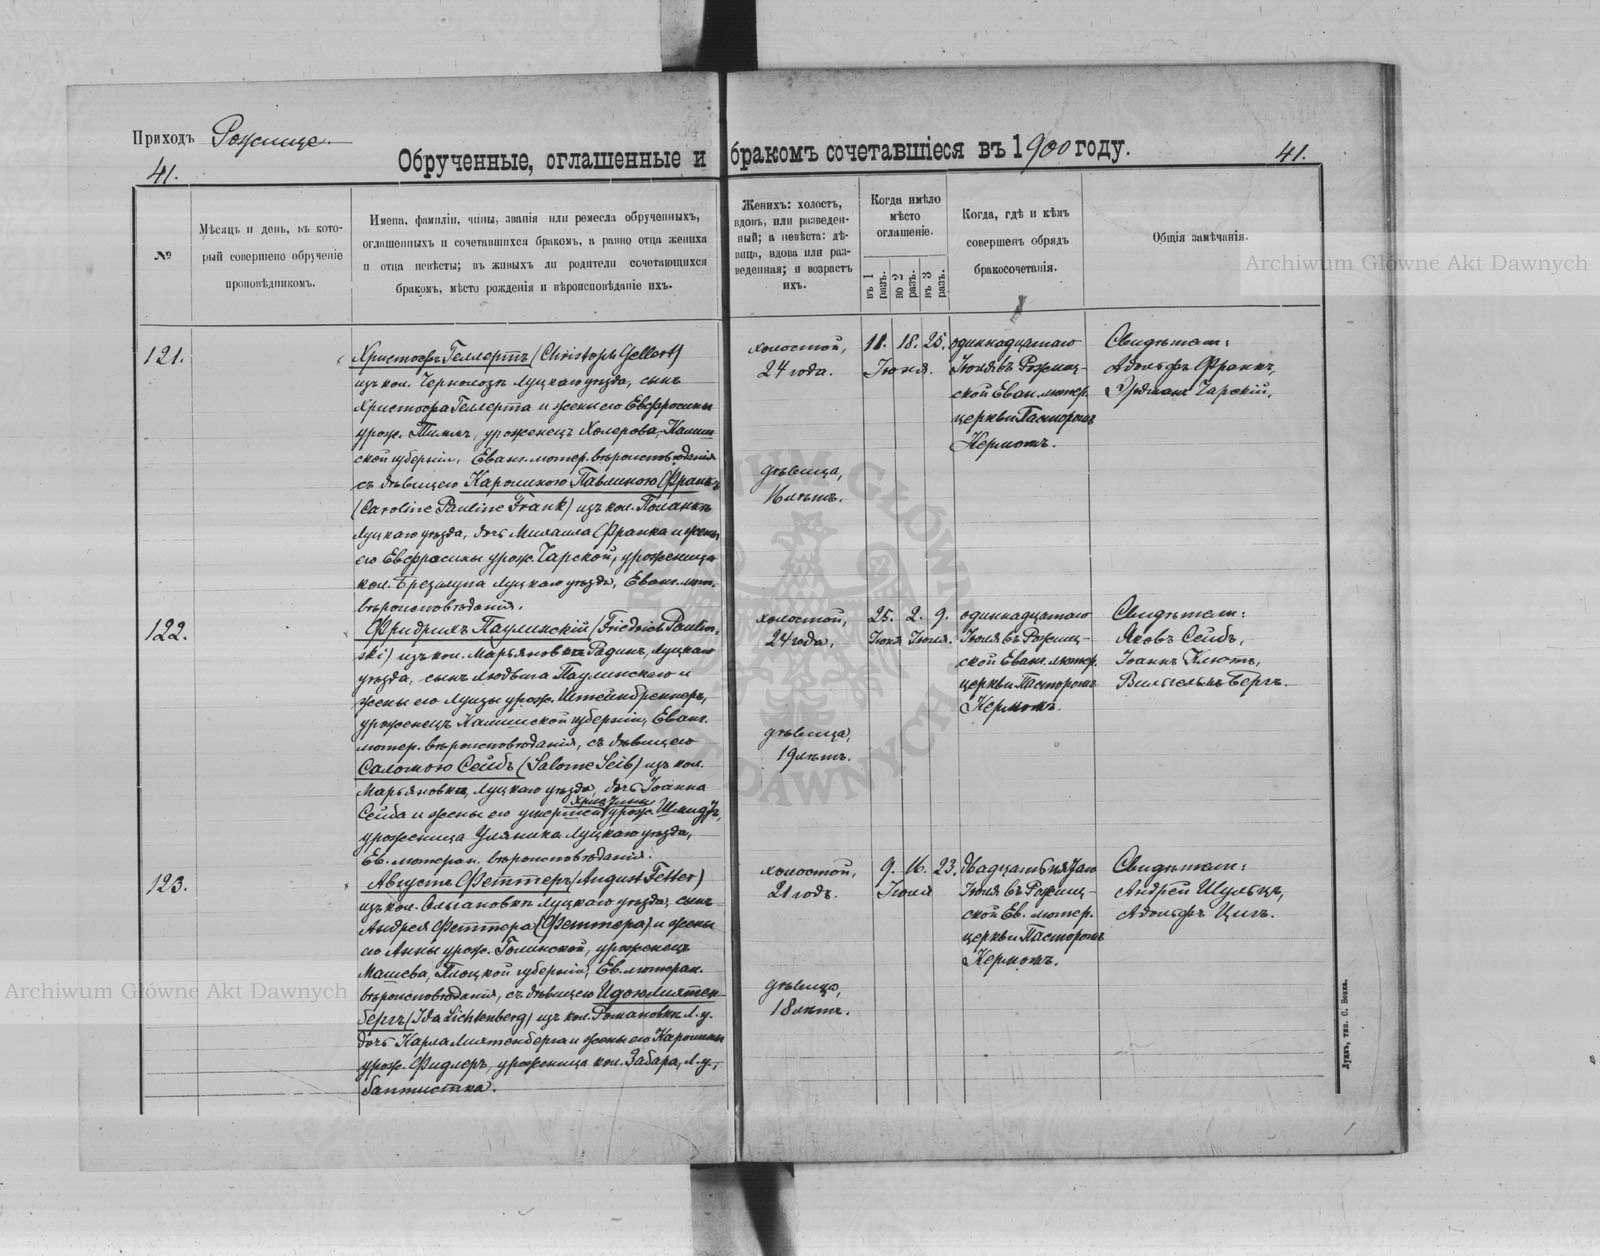 Приходъ Рожище
41.
Обрученные, оглашенные и бракомъ сочетавшіеся въ 1900 году.
41.
№
Мѣсяцъ и день, въ кото-
рый совершено обрученіе
проповѣдникомъ.
Имена, фамиліи, чины, званія или ремесла обрученныхъ,
оглашенныхъ и сочетавшихся бракомъ, а равно отца жениха
и отца невѣсты; въ живыхъ ли родители сочетающихся
бракомъ, мѣсто рожденія и вѣроисповѣданіе ихъ.
Женихъ: холостъ,
вдовъ, или разведен-
ный; а невѣста: дѣ-
вица, вдова или раз-
веденная; и возрастъ
ихъ.
Когда имѣло
мѣсто
оглашеніе.
въ 1
разъ.
во 2
разъ.
въ 3
разъ.
Когда, гдѣ и кѣмъ
совершенъ обрядъ
бракосочетанія.
Общія замѣчанія.
121.
Христофъ Геллертъ (Christoph Gellert)
изъ кол. Чернолозъ Луцкаго уѣзда, сынъ
Христофа Геллерта и жены его Евфросины
урож. Тимъ, уроженецъ Холерова, Калиш
ской губерніи, Еванг. лютер. вѣроисповѣданія
съ дѣвицею Каролиною Павлиною Франкъ
(Caroline Pauline Frank) изъ кол. Поланка
Луцкаго уѣзда, дочь Михаила Франка и жены
его Евфросины урож. Чарской, уроженица
кол. Брезалупа Луцкаго уѣзда, Еванг. лют.
вѣроисповѣданія.
холостой,
24 года.
дѣвица,
16 лѣтъ.
11. 18. 25.
Іюня.
одиннадцатаго
Іюля въ Рожищ-
ской Еван. лютер.
церкви Пасторомъ
Кермомъ.
Свидѣтели:
Адольфъ Франкъ,
Эрдманъ Чарскій.
122.
Фридрихъ Паулинскій (Friedrich Paulin-
ski) изъ кол. Марьяновка Радинъ, Луцкаго
уѣзда, сынъ Людвига Паулинскаго и
жены его Луизы урож. Штейнбреннеръ,
уроженецъ Калишской губерніи, Еванг.
лютер. вѣроисповѣданія, съ дѣвицею
Саломою Сейбъ (Salome Seib) изъ кол.
Марьяновка, Луцкаго уѣзда, дочь Іоанна
Сейба и жены его умершей урож. Шмидтъ,
уроженица Уляника Луцкаго уѣзда,
Ев. лютеран. вѣроисповѣданія.
холостой,
24 года.
дѣвица,
19 лѣтъ.
25. 2. 9.
Іюня Іюля.
одиннадцатаго
Іюля въ Рожищ-
ской Еванг. лютер.
церкви Пасторомъ
Кермомъ.
Свидѣтели:
Яковъ Сейбъ,
Іоаннъ Клютъ,
Вильгельмъ Бергъ.
123.
Августъ Феттеръ (August Fetter)
изъ кол. Ольгановка Луцкаго уѣзда, сынъ
Андрея Феттера (Феттера) и жены
его Анны урож. Голинской, уроженецъ
Машева, Плоцкой губерніи, Ев. лютеран.
вѣроисповѣданія, съ дѣвицею Идою Лихтен-
бергъ (Ida Lichtenberg) изъ кол. Романовка Л. у.
дочь Карла Лихтенберга и жены его Каролины
урож. Фидлеръ, уроженица кол. Забара, Л. у.,
баптистка.
холостой,
21 годъ.
дѣвица,
18 лѣтъ.
9. 16. 23.
Іюля
двадцать пятаго
Іюля въ Рожищ-
ской Ев. лютер.
церкви Пасторомъ
Кермомъ.
Свидѣтели:
Андрей Шульцъ,
Адольфъ Цигъ.
Луцкъ, тип. С. Бокка.
Archiwum Główne Akt Dawnych
Archiwum Główne Akt Dawnych